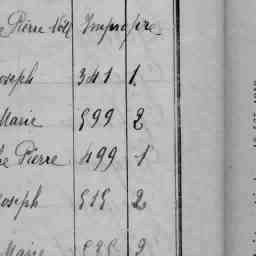 Pierre Noël Impropre
oseph 341 1
Marie 599 2
he Pierre 499 1
oseph 515 2
Marie 535 2